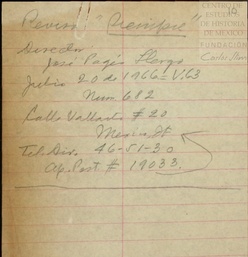 CENTRO DE
ESTUDIOS
DE HISTORIA
DE MEXICO
FUNDACIÓN
Carlos Slim
Revista "Siempre"
Director
José Pagés Llergo
Julio 20 de 1966 = V.63
Num 682
Calle Vallarta # 20
Mexico, Df
Tel. Dir. 46-51-30
Ap. Post # 19033